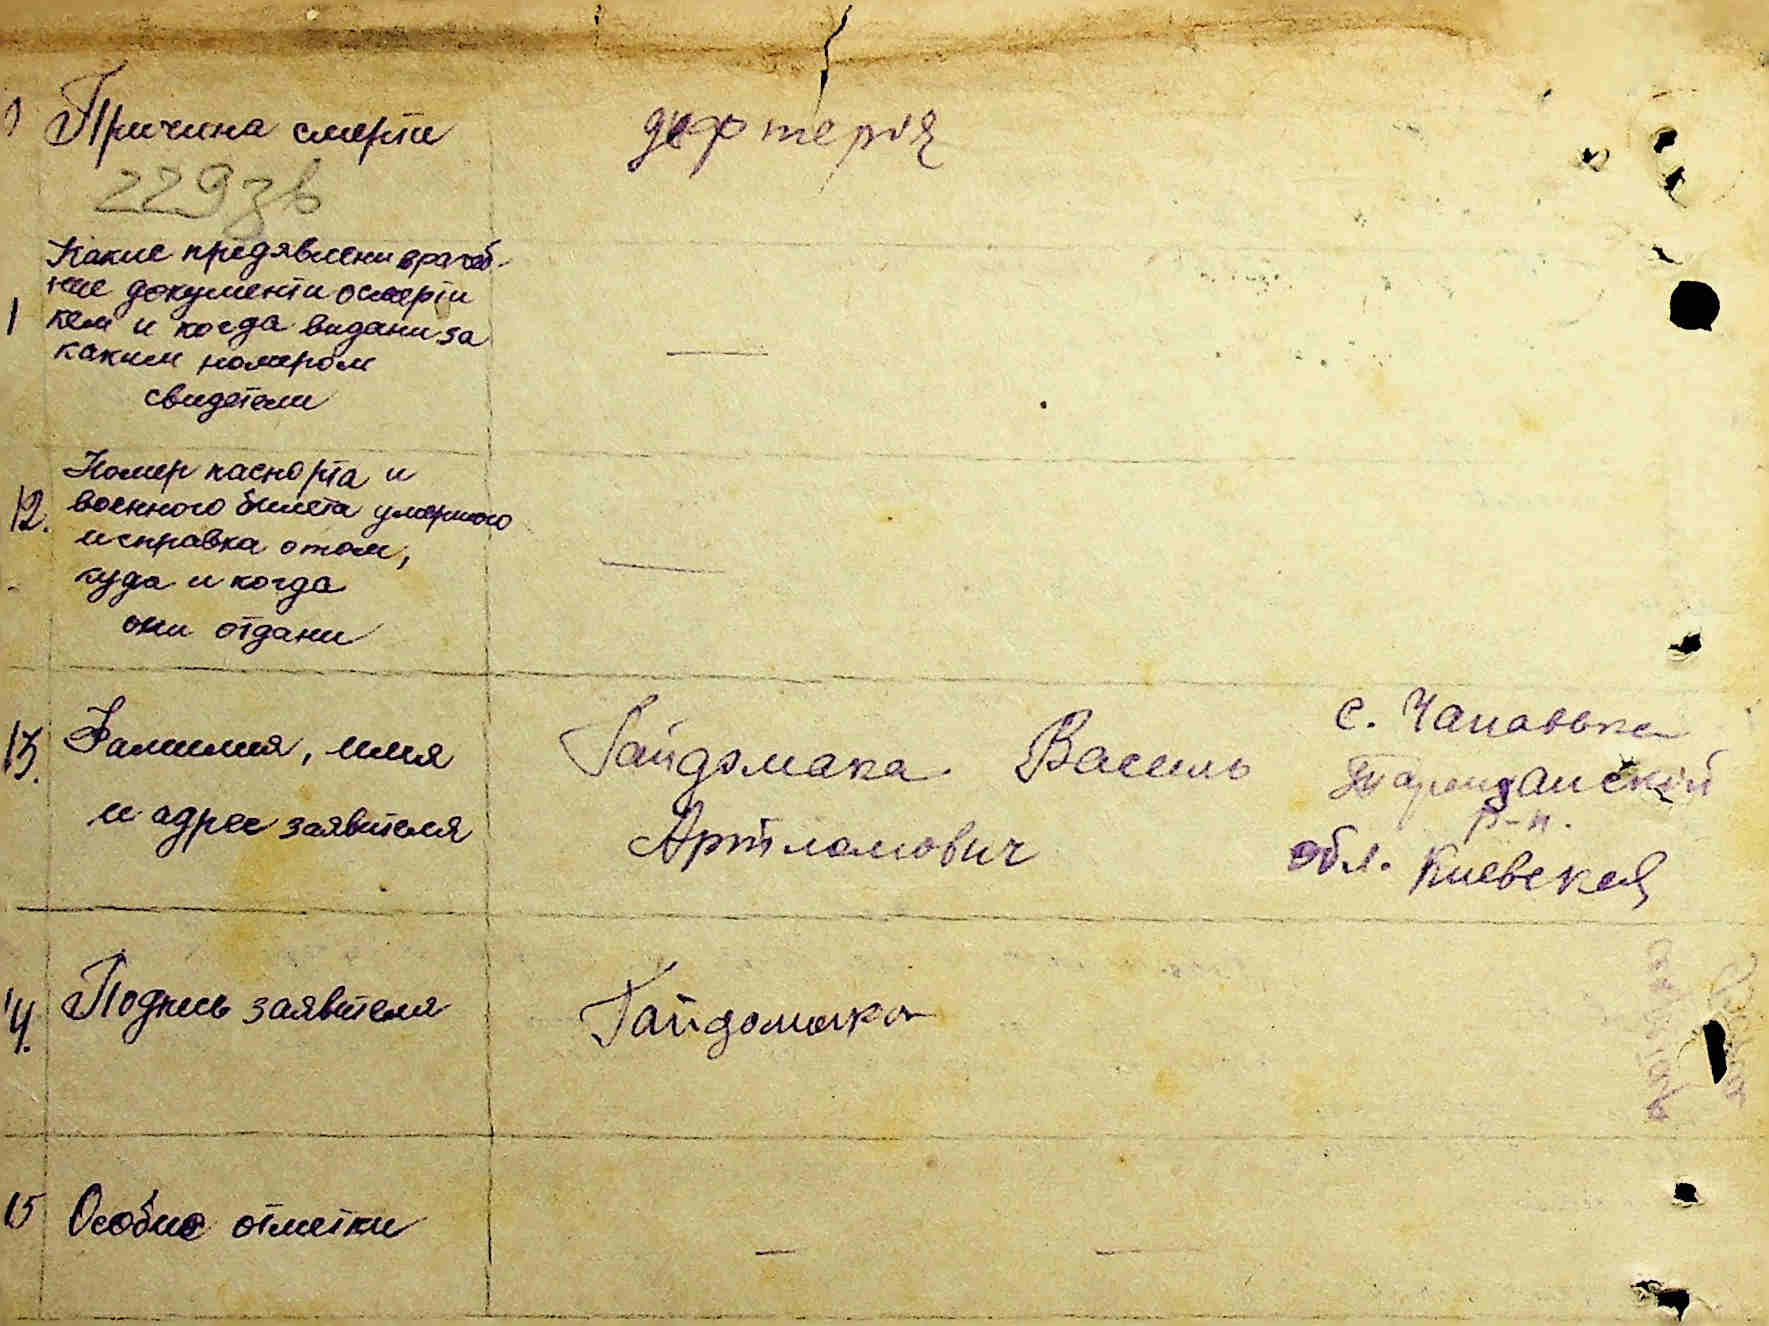 Причина смерти
дифтерія
229зв
Какие предявлени врачеб-
ние документи о смерти
1 кем и когда видани за
каким номером
свидетели
—
12. Номер паспорта и
военного билета умершого
и справка о том,
куда и когда
они отдани
—
13. Фамилия, имя
и адрес заявителя
Гайдомака Василь
Артіломович
с. Чапаевка
р-н.
обл. Киевская
14. Подпись заявителя
Гайдомака
15 Особие отметки
— —